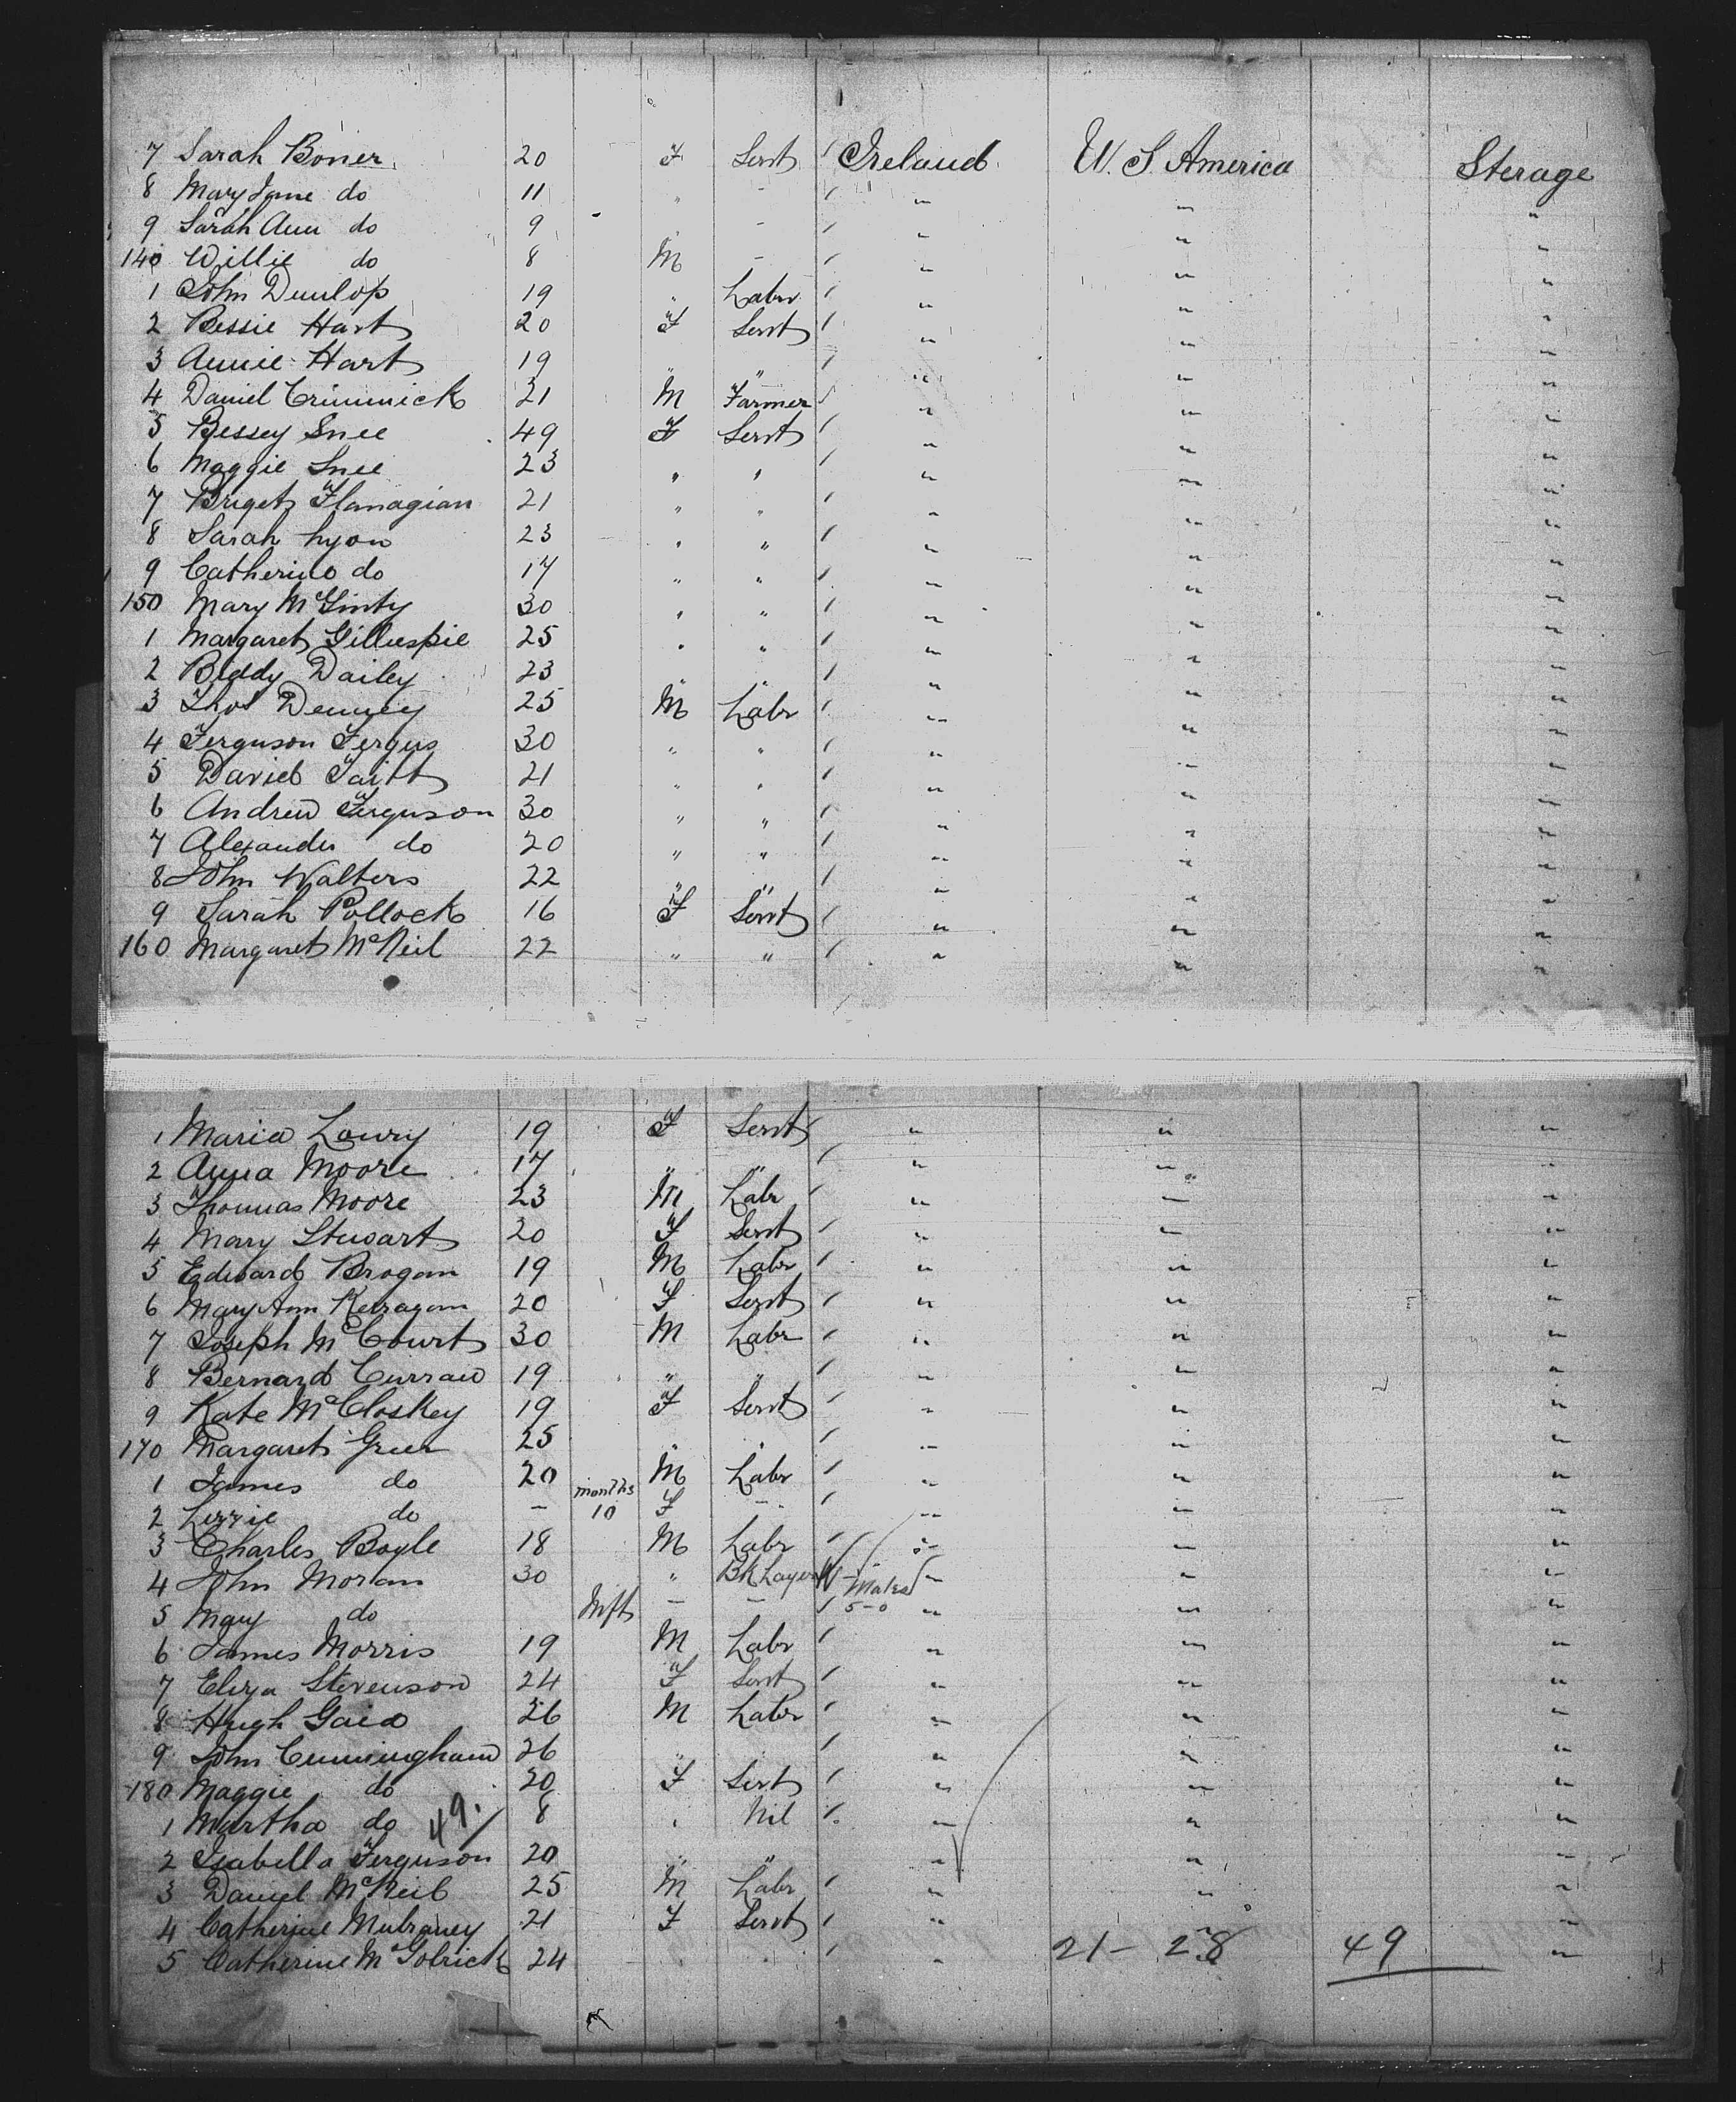 7 Sarah Boner 20 F Servt / Ireland U. S. America Sterage
8 Mary Jane do 11 " - / " " "
9 Sarah Ann do 9 " - / " " "
140 Willie do 8 M - / " " "
1 John Dunlop 19 " Labr / " " "
2 Bessie Hart 20 F Servt / " " "
3 Annie Hart 19 " " / " " "
4 Daniel Crimmick 21 M Farmer / " " "
5 Bessey Snee 49 F Servt / " " "
6 Maggie Snee 23 " " / " " "
7 Briget Flanagian 21 " " / " " "
8 Sarah Lyon 23 " " / " " "
9 Catherine do 17 " " / " " "
150 Mary McGinty 30 " " / " " "
1 Margaret Gilluspie 25 " " / " " "
2 Biddy Dailey 23 " " / " " "
3 Thos Denney 25 M Labr / " " "
4 Ferguson Fergus 30 " " / " " "
5 David Taitt 21 " " / " " "
6 Andrew Ferguson 30 " " / " " "
7 Alexander do 20 " " / " " "
8 John Walters 22 " " / " " "
9 Sarah Pollock 16 F Servt / " " "
160 Margaret McNeil 22 " " / " " "
1 Maria Lowry 19 F Servt / " " "
2 Anna Moore 17 " " / " " "
3 Thomas Moore 23 M Labr / " " "
4 Mary Stewart 20 F Servt / " " "
5 Edward Brogan 19 M Labr / " " "
6 Mary Ann Kerragan 20 F Servt / " " "
7 Joseph McCourt 30 M Labr / " " "
8 Bernard Curran 19 " " / " " "
9 Kate McCloskey 19 F Servt / " " "
170 Margaret Greer 25 " " / " " "
1 James do 20 M Labr / " " "
2 Lizzie do - months 10 F - / " " "
3 Charles Boyle 18 M Labr / " " "
4 John Moran 30 " Bk Layer / " " "
5 Mary do Inft - - / Males 5-0 " " "
6 James Morris 19 M Labr / " " "
7 Eliza Stevenson 24 F Servt / " " "
8 Hugh 26 M Labr / " " "
9 John Cunningham 26 " " / " " "
180 Maggie do 20 F Servt / " " "
1 Martha do 49. 8 " Nil / " " "
2 Isabella Ferguson 20 " " / " " "
3 Daniel McNeil 25 M Labr / " " "
4 Catherine Mulraney 21 F Servt / " " "
5 Catherine McGolrick 24 " " / " 21- 28 49 "